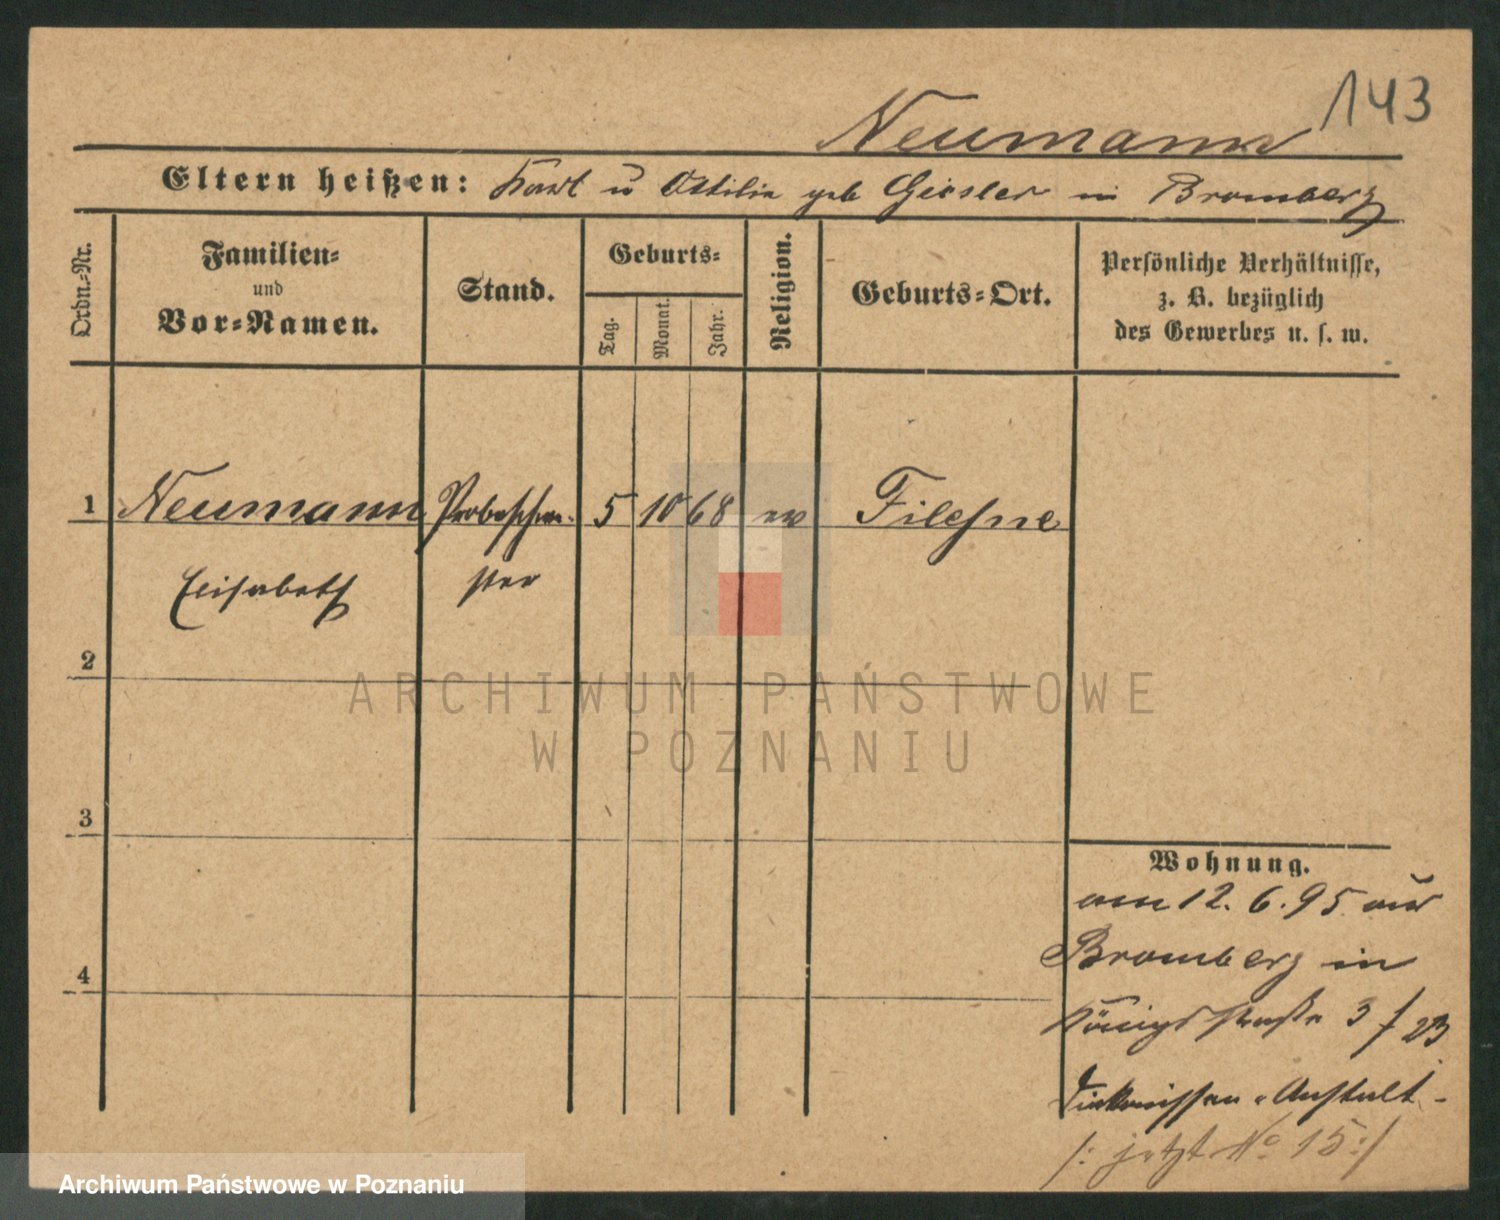 143
Neumann
Eltern heißen: Karl u Ottilie geb Giesler in Bromberg
Ordn.-Nr.
Familien-
und
Vor-Namen.
Stand.
Geburts-
Tag.
Monat.
Jahr.
Religion.
Geburts-Ort.
Persönliche Verhältnisse,
z. B. bezüglich
des Gewerbes u. s. w.
1 Neumann Probeschwe- 5 10 68 ev Filehne
Elisabeth ster
2
3
4
Wohnung.
am 12. 6. 95 aus
Bromberg in
Königsstraße 3 / 23
Diakonissen-Anstalt-
/: jetzt No 15 :/
ARCHIWUM PAŃSTWOWE
W POZNANIU
Archiwum Państwowe w Poznaniu